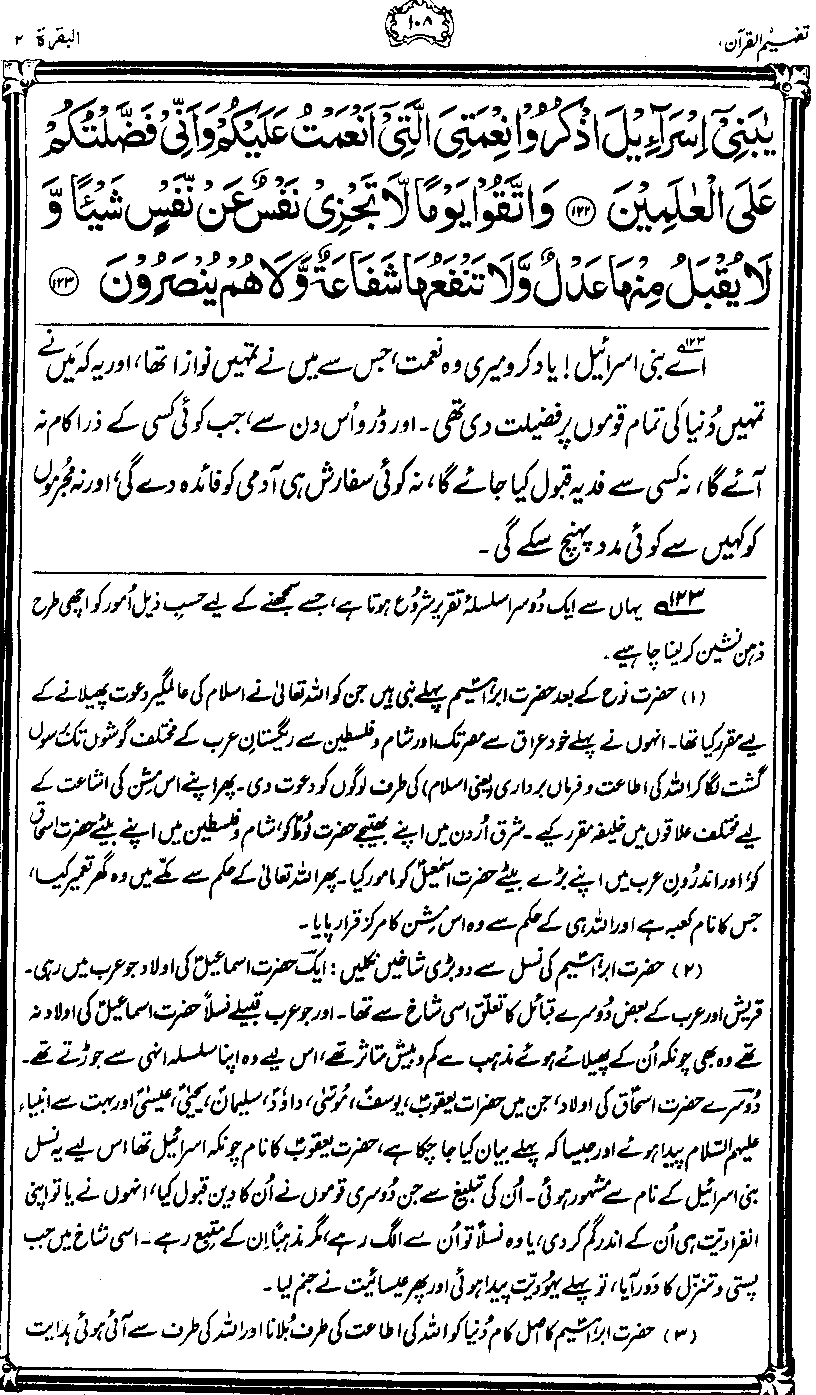 تفہیم القرآن ۱
۱۰۸
البقرۃ ۲
يٰبَنِيْٓ اِسْرَآءِيْلَ اذْكُرُوْا نِعْمَتِيَ الَّتِيْٓ اَنْعَمْتُ عَلَيْكُمْ وَاَنِّيْ فَضَّلْتُكُمْ
عَلَى الْعٰلَمِيْنَ ﴿۱۲۲﴾ وَاتَّقُوْا يَوْمًا لَّا تَجْزِيْ نَفْسٌ عَنْ نَّفْسٍ شَيْـًٔا وَّ
لَا يُقْبَلُ مِنْهَا عَدْلٌ وَّلَا تَنْفَعُهَا شَفَاعَةٌ وَّلَا هُمْ يُنْصَرُوْنَ ﴿۱۲۳﴾
۱۲۳؎ اے بنی اسرائیل! یاد کرو میری وہ نعمت، جس سے میں نے تمہیں نوازا تھا، اور یہ کہ مَیں نے
تمہیں دُنیا کی تمام قوموں پر فضیلت دی تھی۔ اور ڈرو اُس دن سے، جب کوئی کسی کے ذرا کام نہ
آئے گا، نہ کسی سے فدیہ قبول کیا جائے گا، نہ کوئی سفارش ہی آدمی کو فائدہ دے گی، اور نہ مجرموں
کو کہیں سے کوئی مدد پہنچ سکے گی۔
۱۲۳؎ یہاں سے ایک دُوسرا سلسلۂ تقریر شروع ہوتا ہے، جسے سمجھنے کے لیے حسبِ ذیل اُمور کو اچھی طرح
ذہن نشین کر لینا چاہیے۔
(۱) حضرت نوحؑ کے بعد حضرت ابراہیمؑ پہلے نبی ہیں جن کو اللہ تعالیٰ نے اسلام کی عالمگیر دعوت پھیلانے کے
لیے مقرر کیا تھا۔ انہوں نے پہلے خود عراق سے مصر تک اور شام و فلسطین سے ریگستانِ عرب کے مختلف گوشوں تک برسوں
گشت لگا کر اللہ کی اطاعت و فرماں برداری (یعنی اسلام) کی طرف لوگوں کو دعوت دی۔ پھر اپنے اس مِشن کی اشاعت کے
لیے مختلف علاقوں میں خلیفہ مقرر کیے۔ شرقِ اُردن میں اپنے بھتیجے حضرت لُوطؑ کو، شام و فلسطین میں اپنے بیٹے حضرت اسحاقؑ
کو، اور اندرُونِ عرب میں اپنے بڑے بیٹے حضرت اسمٰعیلؑ کو مامور کیا۔ پھر اللہ تعالیٰ کے حکم سے مکّے میں وہ گھر تعمیر کیا،
جس کا نام کعبہ ہے اور اللہ ہی کے حکم سے وہ اس مِشن کا مرکز قرار پایا۔
(۲) حضرت ابراہیمؑ کی نسل سے دو بڑی شاخیں نکلیں: ایک حضرت اسماعیلؑ کی اولاد جو عرب میں رہی۔
قریش اور عرب کے بعض دُوسرے قبائل کا تعلق اسی شاخ سے تھا۔ اور جو عرب قبیلے نسلاً حضرت اسماعیلؑ کی اولاد نہ
تھے وہ بھی چونکہ اُن کے پھیلائے ہوئے مذہب سے کم و بیش متاثر تھے، اس لیے وہ اپنا سلسلہ انہی سے جوڑتے تھے۔
دُوسرے حضرت اسحاقؑ کی اولاد، جن میں حضرات یعقوبؑ، یوسفؑ، موسٰیؑ، داؤدؑ، سلیمانؑ، یحیٰیؑ، عیسٰیؑ اور بہت سے انبیاء
علیہم السّلام پیدا ہوئے اور جیسا کہ پہلے بیان کیا جا چکا ہے، حضرت یعقوبؑ کا نام چونکہ اسرائیل تھا اس لیے یہ نسل
بنی اسرائیل کے نام سے مشہور ہوئی۔ اُن کی تبلیغ سے جن دُوسری قوموں نے اُن کا دین قبول کیا، انہوں نے یا تو اپنی
انفرادیّت ہی اُن کے اندر گم کر دی، یا وہ نسلاً تو اُن سے الگ رہے، مگر مذہباً اِن کے متبع رہے۔ اسی شاخ میں جب
پستی و تنزّل کا دَور آیا، تو پہلے یہُودیّت پیدا ہوئی اور پھر عیسائیت نے جنم لیا۔
(۳) حضرت ابراہیمؑ کا اصل کام دُنیا کو اللہ کی اطاعت کی طرف بُلانا اور اللہ کی طرف سے آئی ہوئی ہدایت